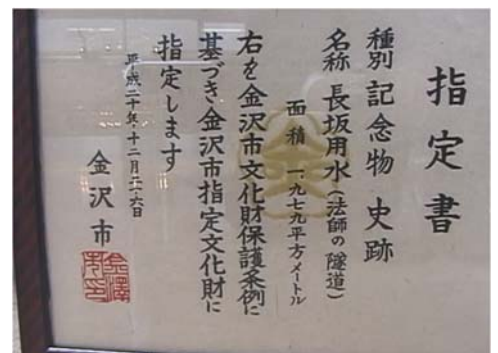 指定書
種別 記念物 史跡
名称 長坂用水(法師の隧道)
面積 一、九七九平方メートル
右を金沢市文化財保護条例に
基づき金沢市指定文化財に
指定します
平成二十年十二月二十六日
金沢市